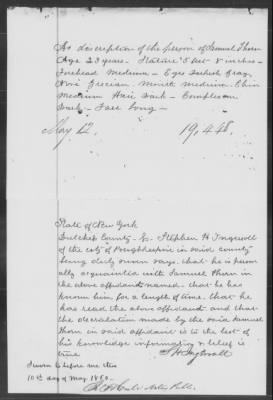 As description of the person of Samuel Thorn
Age 23 years. Stature 5 feet 8 inches
Forehead Medium - Eyes Darkish Gray,
Nose Grecian. Mouth medium. Chin
Medium Hair Dark - Complexion
Dark - Face Long -
May 12. 19,448.
State of New York
Dutchess County - Ss. Stephen H Ingersoll
of the city of Poughkeepsie in said county
being duly sworn says. that he is person
ally acquainted with Samuel Thorn in
the above affidavit named. that he has
known him for a length of time. that he
has read the above affidavit and that
the declaration made by the said Samuel
Thorn in said affidavit is to the best of
his knowledge information & belief is
true
Sworn to before me this
10th day of May 1860.